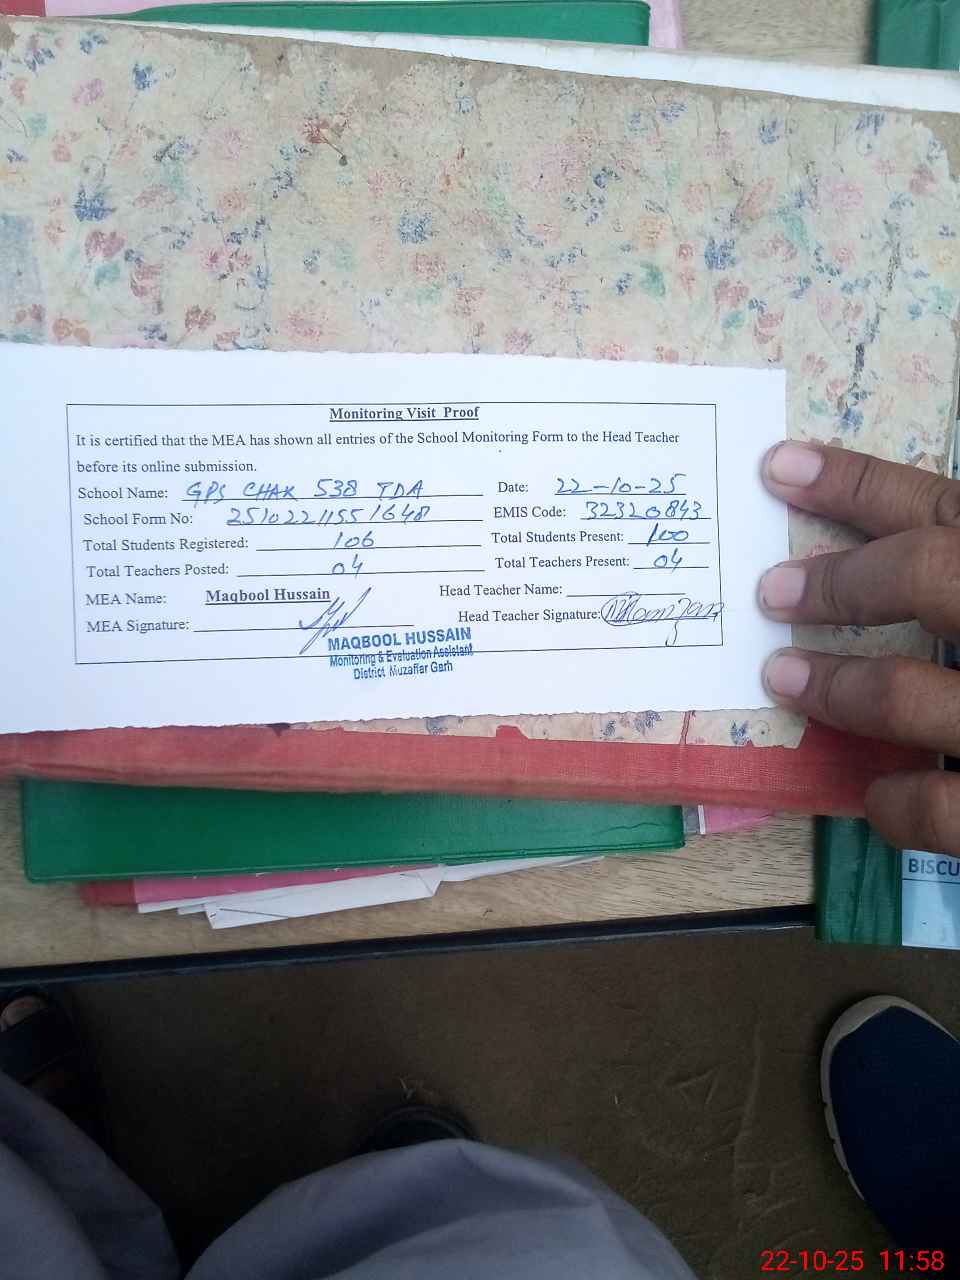 Monitoring Visit Proof
It is certified that the MEA has shown all entries of the School Monitoring Form to the Head Teacher
before its online submission.
School Name: GPS CHAK 538 TDA Date: 22-10-25
School Form No: 25102211551648 EMIS Code: 32320843
Total Students Registered: 106 Total Students Present: 100
Total Teachers Posted: 04 Total Teachers Present: 04
MEA Name: Maqbool Hussain Head Teacher Name:
MEA Signature: Head Teacher Signature:
MAQBOOL HUSSAIN
Monitoring & Evaluation Assistant
District Muzaffar Garh
BISCU
22-10-25 11:58